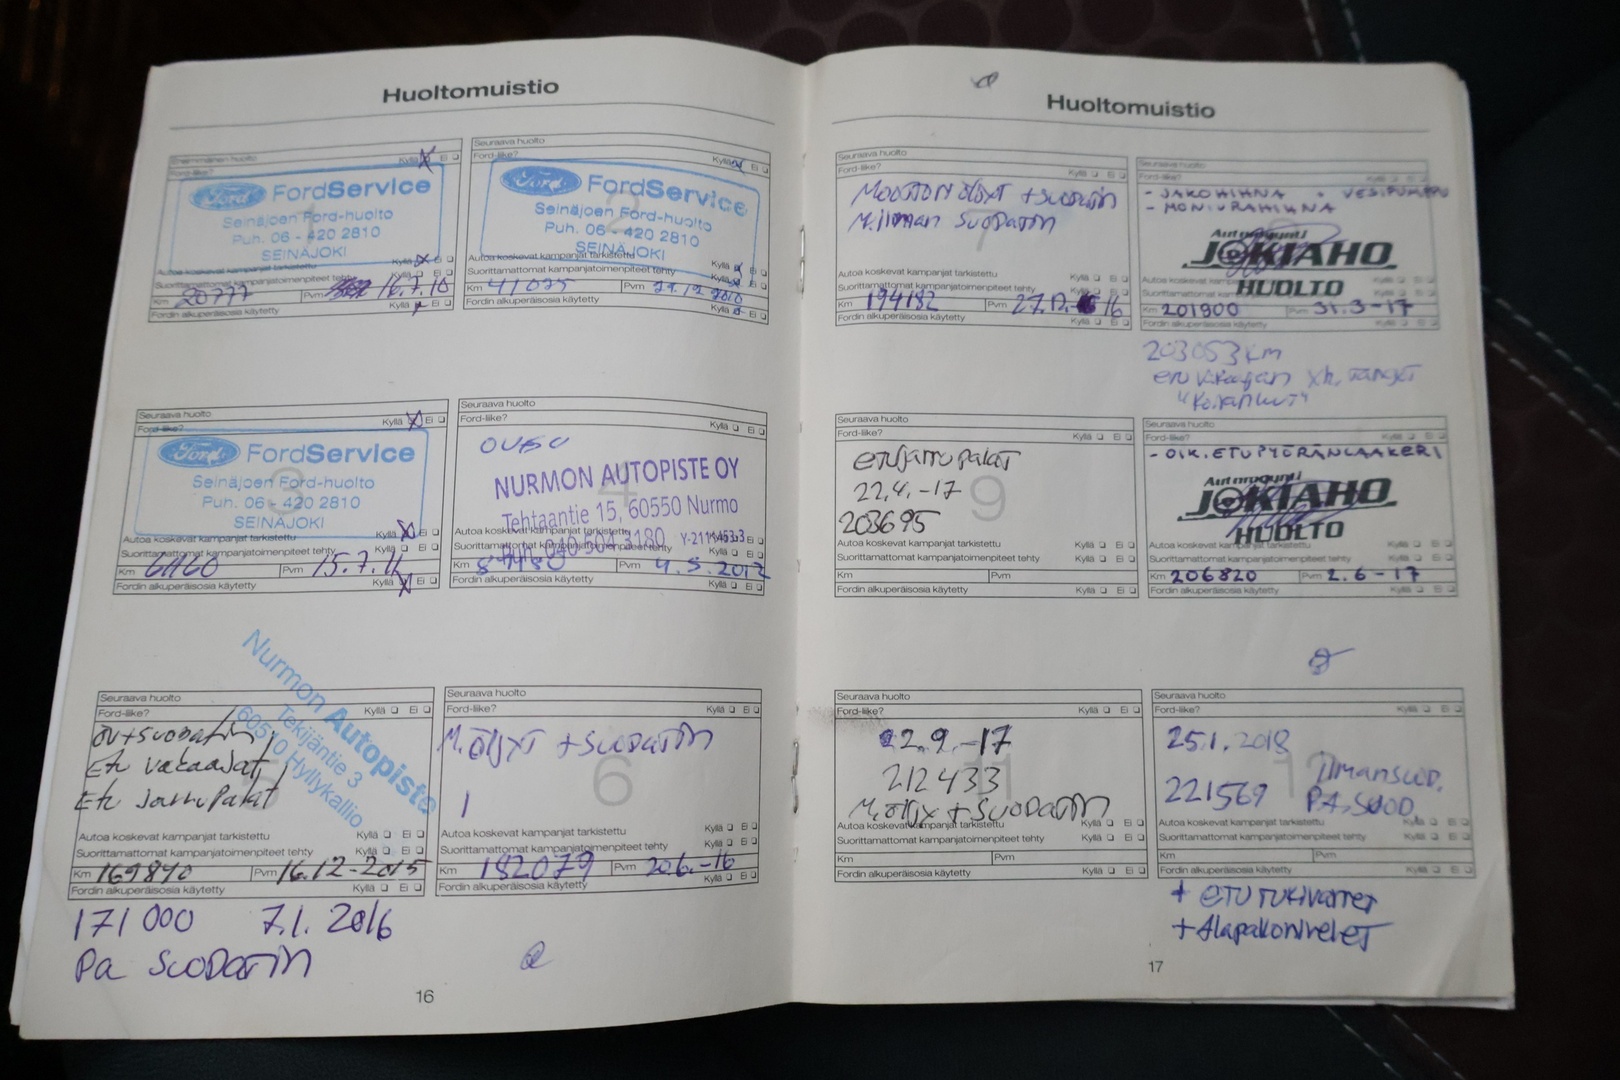 Huoltomuistio
Ensimmäinen huolto
Ford-like?
Kyllä Ei
Ford FordService
Seinäjoen Ford-huolto
Puh. 06 - 420 2810
SEINÄJOKI
Autoa koskevat kampanjat tarkistettu Kyllä Ei
Suorittamattomat kampanjatoimenpiteet tehty Kyllä Ei
Km 20777 Pvm 16.7.10
Fordin alkuperäisosia käytetty Kyllä Ei
Seuraava huolto
Ford-like? Kyllä Ei
Ford FordService
Seinäjoen Ford-huolto
Puh. 06 - 420 2810
SEINÄJOKI
Autoa koskevat kampanjat tarkistettu Kyllä Ei
Suorittamattomat kampanjatoimenpiteet tehty Kyllä Ei
Km 41075 Pvm 2010
Fordin alkuperäisosia käytetty Kyllä Ei
Seuraava huolto
Ford-like? Kyllä Ei
3
Ford FordService
Seinäjoen Ford-huolto
Puh. 06 - 420 2810
SEINÄJOKI
Autoa koskevat kampanjat tarkistettu Kyllä Ei
Suorittamattomat kampanjatoimenpiteet tehty
Km Pvm 15.7.
Fordin alkuperäisosia käytetty Kyllä Ei
Seuraava huolto
Ford-like? Kyllä Ei
4
NURMON AUTOPISTE OY
Tehtaantie 15, 60550 Nurmo
Puh. 040 504 3180
Autoa koskevat kampanjat tarkistettu
Suorittamattomat kampanjatoimenpiteet tehty Kyllä Ei
Km Pvm 4.5.2012
Fordin alkuperäisosia käytetty Kyllä Ei
Seuraava huolto
Ford-like? Kyllä Ei
5
öv+suodatin
Etu vakaajat
Etu jarrupalat
Nurmon Autopiste
Tekijäntie 3
60510 Hyllykallio
Autoa koskevat kampanjat tarkistettu Kyllä Ei
Suorittamattomat kampanjatoimenpiteet tehty Kyllä Ei
Km 169840 Pvm 16.12-2015
Fordin alkuperäisosia käytetty Kyllä Ei
171 000 7.1. 2016
Pa SUODATIN
Seuraava huolto
Ford-like? Kyllä Ei
6
M.ÖLJYT + SUODATIN
Autoa koskevat kampanjat tarkistettu Kyllä Ei
Suorittamattomat kampanjatoimenpiteet tehty Kyllä Ei
Km 182079 Pvm 20.6.-16
Fordin alkuperäisosia käytetty Kyllä Ei
16
Huoltomuistio
Seuraava huolto
Ford-like? Kyllä Ei
7
MOOTTORIN ÖLJYT + SUODATIN
M.ilman SUODATIN
Autoa koskevat kampanjat tarkistettu Kyllä Ei
Suorittamattomat kampanjatoimenpiteet tehty Kyllä Ei
Km 194182 Pvm 16
Fordin alkuperäisosia käytetty Kyllä Ei
Seuraava huolto
- JAKOHIHNA - VESIPUMPPU
- MONIURAHIHNA
Autorngunti
JOKIAHO
HUOLTO
Autoa koskevat kampanjat tarkistettu Kyllä Ei
Suorittamattomat Kyllä Ei
Km 201900 Pvm 31.3-17
Fordin alkuperäisosia käytetty Kyllä Ei
203053 km
etu vakaajan yh. TANGOT
Seuraava huolto
Ford-like? Kyllä Ei
9
etujarrupalat
22.4.-17
203695
Autoa koskevat kampanjat tarkistettu Kyllä Ei
Suorittamattomat kampanjatoimenpiteet tehty Kyllä Ei
Km Pvm
Fordin alkuperäisosia käytetty Kyllä Ei
Seuraava huolto
Ford-like? Kyllä Ei
- OIK. ETUPYÖRÄNLAAKERI
JOKIAHO
HUOLTO
Autoa koskevat kampanjat tarkistettu Kyllä Ei
Suorittamattomat kampanjatoimenpiteet tehty Kyllä Ei
Km 206820 Pvm 2.6-17
Fordin alkuperäisosia käytetty Kyllä Ei
Seuraava huolto
Ford-like? Kyllä Ei
11
22.9.-17
212433
M.öljyt + SUODATIN
Autoa koskevat kampanjat tarkistettu Kyllä Ei
Suorittamattomat kampanjatoimenpiteet tehty Kyllä Ei
Km Pvm
Fordin alkuperäisosia käytetty Kyllä Ei
Seuraava huolto
Ford-like? Kyllä Ei
12
25.1.2018
ilmansuod.
221569 P.A.SUOD.
Autoa koskevat kampanjat tarkistettu Kyllä Ei
Suorittamattomat kampanjatoimenpiteet tehty Kyllä Ei
Km Pvm
Fordin alkuperäisosia käytetty Kyllä Ei
+ ETUTUKIVARRET
+ Alapallonivelet
17